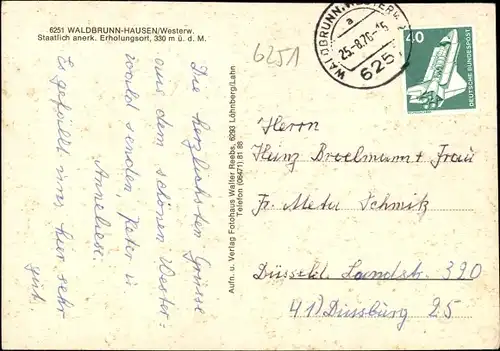 6251 WALDBRUNN-HAUSEN/Westerw.
Staatlich anerk. Erholungsort, 330 m ü. d. M.
6251
WALDBRUNN, WESTERW.
a
25.-8.76-15
6251
40
DEUTSCHE BUNDESPOST
Die herzlichsten Grüsse
aus dem schönen Wester-
wald senden, Peter u
Anneliese.
Es gefällt uns hier sehr
gut.
Aufn. u. Verlag Fotohaus Walter Reebs, 6293 Löhnberg/Lahn
Telefon (06471) 81 88
Herrn
Heinz Broelmann + Frau
Fr. Meta Schmik
Düsseld. Landstr. 390
41) Duisburg 25